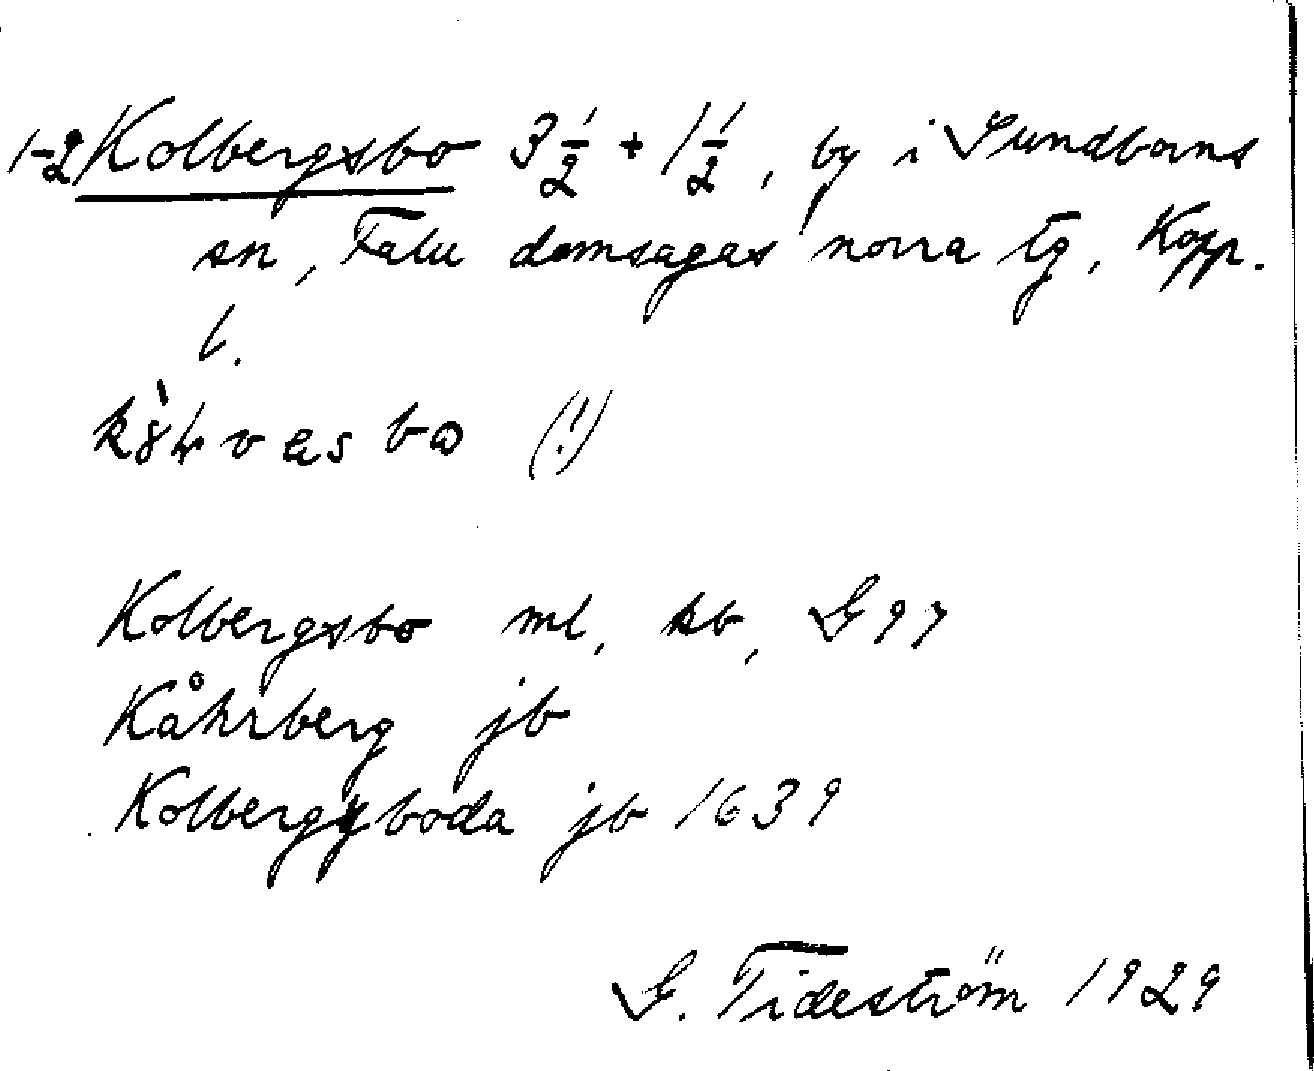 1-2 Kolbergsbo 3 1/2 + 1 1/2, by i Sundborns
sn, Falu domsagas norra tg, Kopp.
l.
(!)
Kolbergsbo ml, kb, G 97
Kåhrberg jb
Kolbergzboda jb 1639
G. Tideström 1929